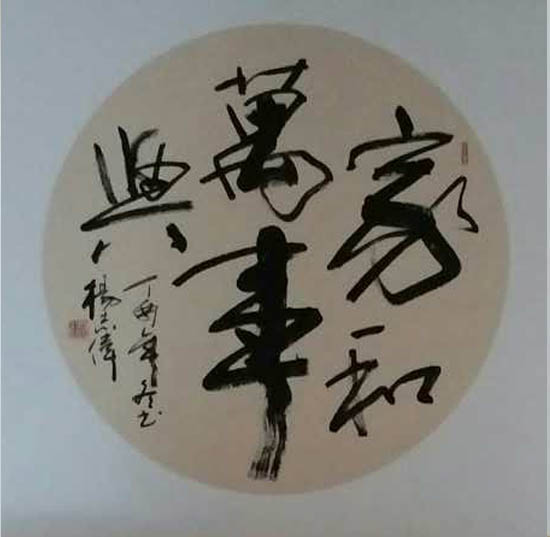 家和
萬事
興
丁酉年冬书
楊志偉